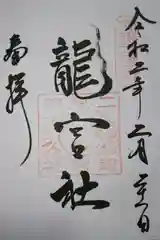 令和二年二月二十一日
龍宮社
奉拝